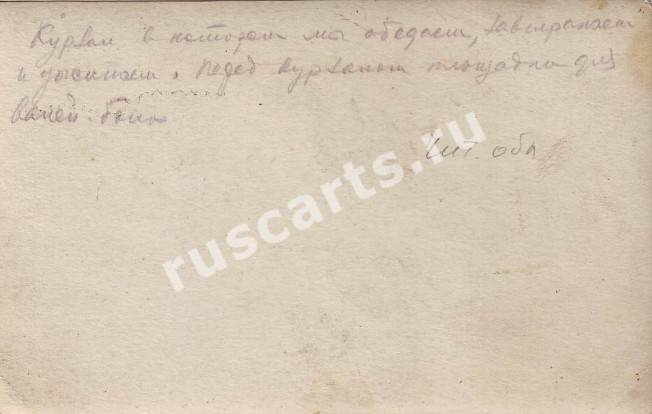 Курзал в котором мы обедаем, завтракаем
и ужинаем. Перед курзалом площадка для
Чит. обл
ruscarts.ru